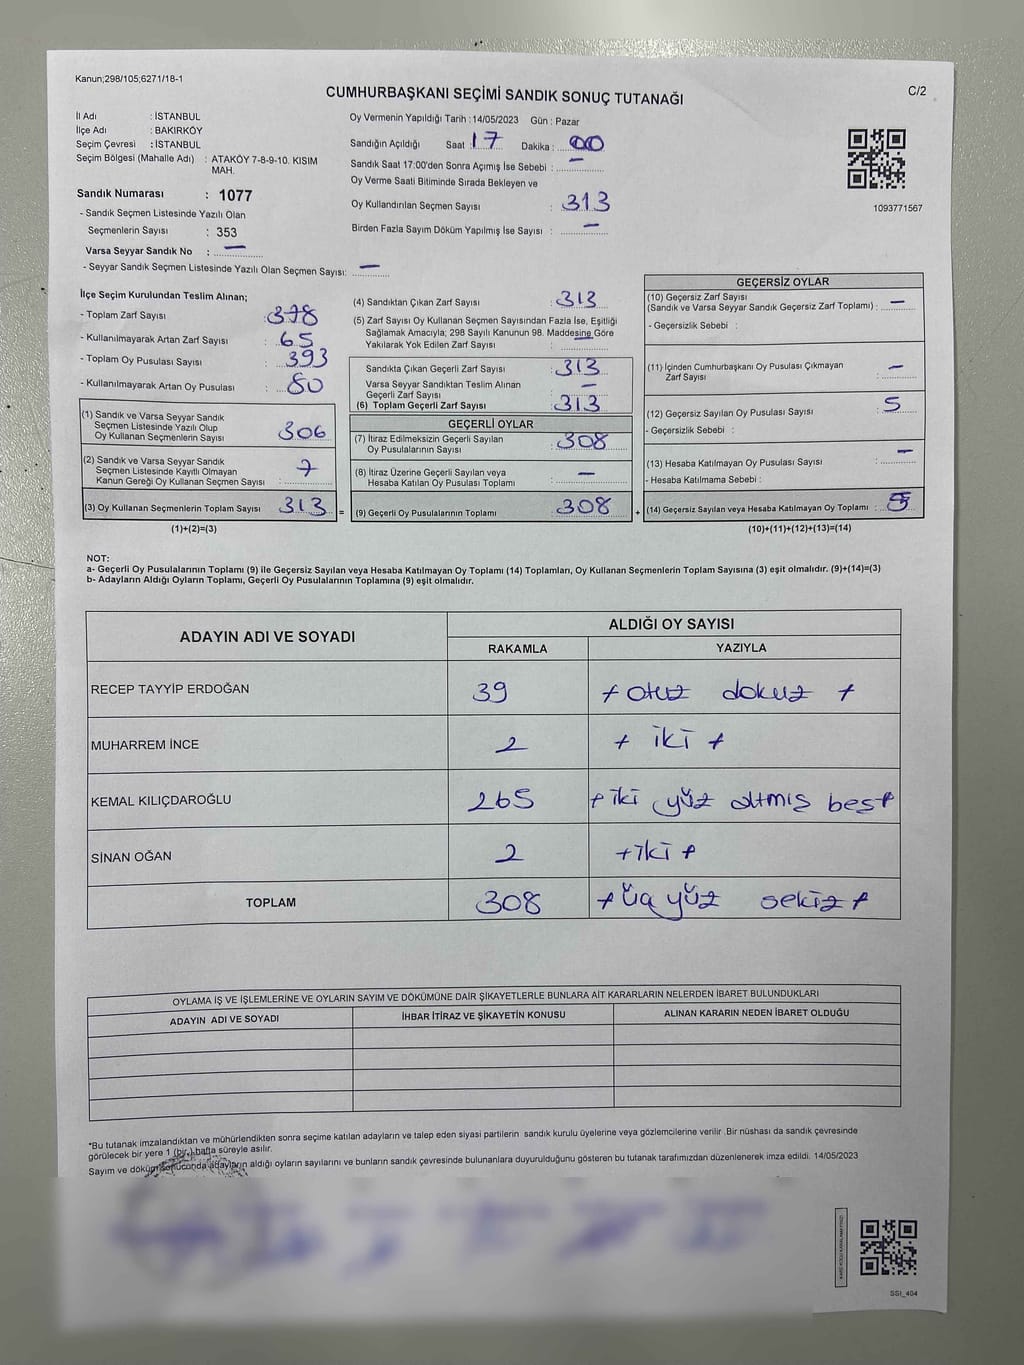 Kanun;298/105;6271/18-1
CUMHURBAŞKANI SEÇİMİ SANDIK SONUÇ TUTANAĞI
C/2
İl Adı : İSTANBUL
İlçe Adı : BAKIRKÖY
Seçim Çevresi : İSTANBUL
Seçim Bölgesi (Mahalle Adı) : ATAKÖY 7-8-9-10. KISIM
MAH.
Sandık Numarası : 1077
- Sandık Seçmen Listesinde Yazılı Olan
Seçmenlerin Sayısı : 353
Varsa Seyyar Sandık No : —
- Seyyar Sandık Seçmen Listesinde Yazılı Olan Seçmen Sayısı: —
Oy Vermenin Yapıldığı Tarih :14/05/2023 Gün : Pazar
Sandığın Açıldığı Saat 17 Dakika : 00
Sandık Saat 17:00'den Sonra Açımış İse Sebebi : —
Oy Verme Saati Bitiminde Sırada Bekleyen ve
Oy Kullandırılan Seçmen Sayısı : 313
Birden Fazla Sayım Döküm Yapılmış İse Sayısı : —
1093771567
İlçe Seçim Kurulundan Teslim Alınan;
- Toplam Zarf Sayısı : 378
- Kullanılmayarak Artan Zarf Sayısı : 65
- Toplam Oy Pusulası Sayısı : 393
- Kullanılmayarak Artan Oy Pusulası : 80
(1) Sandık ve Varsa Seyyar Sandık
Seçmen Listesinde Yazılı Olup
Oy Kullanan Seçmenlerin Sayısı : 306
(2) Sandık ve Varsa Seyyar Sandık
Seçmen Listesinde Kayıtlı Olmayan
Kanun Gereği Oy Kullanan Seçmen Sayısı : 7
(3) Oy Kullanan Seçmenlerin Toplam Sayısı : 313 =
(1)+(2)=(3)
(4) Sandıktan Çıkan Zarf Sayısı : 313
(5) Zarf Sayısı Oy Kullanan Seçmen Sayısından Fazla İse, Eşitliği
Sağlamak Amacıyla; 298 Sayılı Kanunun 98. Maddesine Göre
Yakılarak Yok Edilen Zarf Sayısı : —
Sandıkta Çıkan Geçerli Zarf Sayısı : 313
Varsa Seyyar Sandıktan Teslim Alınan
Geçerli Zarf Sayısı : —
(6) Toplam Geçerli Zarf Sayısı : 313
GEÇERLİ OYLAR
(7) İtiraz Edilmeksizin Geçerli Sayılan
Oy Pusulalarının Sayısı : 308
(8) İtiraz Üzerine Geçerli Sayılan veya
Hesaba Katılan Oy Pusulası Toplamı : —
(9) Geçerli Oy Pusulalarının Toplamı : 308 +
GEÇERSİZ OYLAR
(10) Geçersiz Zarf Sayısı
(Sandık ve Varsa Seyyar Sandık Geçersiz Zarf Toplamı) : —
- Geçersizlik Sebebi :
(11) İçinden Cumhurbaşkanı Oy Pusulası Çıkmayan
Zarf Sayısı : —
(12) Geçersiz Sayılan Oy Pusulası Sayısı : 5
- Geçersizlik Sebebi :
(13) Hesaba Katılmayan Oy Pusulası Sayısı : —
- Hesaba Katılmama Sebebi :
(14) Geçersiz Sayılan veya Hesaba Katılmayan Oy Toplamı : 5
(10)+(11)+(12)+(13)=(14)
NOT:
a- Geçerli Oy Pusulalarının Toplamı (9) ile Geçersiz Sayılan veya Hesaba Katılmayan Oy Toplamı (14) Toplamları, Oy Kullanan Seçmenlerin Toplam Sayısına (3) eşit olmalıdır. (9)+(14)=(3)
b- Adayların Aldığı Oyların Toplamı, Geçerli Oy Pusulalarının Toplamına (9) eşit olmalıdır.
ADAYIN ADI VE SOYADI
ALDIĞI OY SAYISI
RAKAMLA YAZIYLA
RECEP TAYYİP ERDOĞAN 39 + otuz dokuz +
MUHARREM İNCE 2 + iki +
KEMAL KILIÇDAROĞLU 265 + iki yüz altmış beş +
SİNAN OĞAN 2 + iki +
TOPLAM 308 + üç yüz sekiz +
OYLAMA İŞ VE İŞLEMLERİNE VE OYLARIN SAYIM VE DÖKÜMÜNE DAİR ŞİKAYETLERLE BUNLARA AİT KARARLARIN NELERDEN İBARET BULUNDUKLARI
ADAYIN ADI VE SOYADI İHBAR İTİRAZ VE ŞİKAYETİN KONUSU ALINAN KARARIN NEDEN İBARET OLDUĞU
*Bu tutanak imzalandıktan ve mühürlendikten sonra seçime katılan adayların ve talep eden siyasi partilerin sandık kurulu üyelerine veya gözlemcilerine verilir .Bir nüshası da sandık çevresinde
görülecek bir yere 1 (bir ) hafta süreyle asılır.
Sayım ve döküm sonucunda adayların aldığı oyların sayılarını ve bunların sandık çevresinde bulunanlara duyurulduğunu gösteren bu tutanak tarafımızdan düzenlenerek imza edildi. 14/05/2023
SSI_404